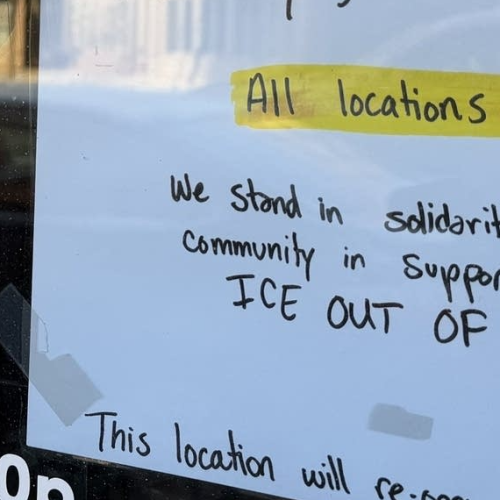 All locations
We stand in solidarit
community in suppor
ICE OUT OF
This location will re-
on